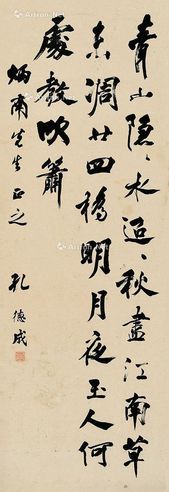 青山隐〻水迢〻秋尽江南草
未凋廿四桥明月夜玉人何
处教吹箫
炳南先生正之
孔德成